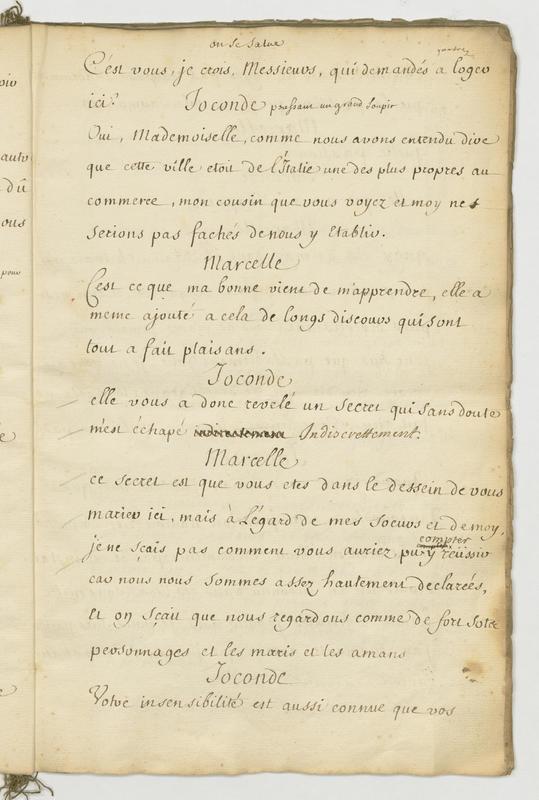 on se salue
C'est vous, je crois, Messieurs, qui demandés a loger
ici?
Joconde poussant un grand soupir
Oui, Mademoiselle, comme nous avons entendu dire
que cette ville etoit de l'Italie une des plus propres au
commerce, mon cousin que vous voyez et moy nes
serions pas fachés de nous y Etablir.
Marcelle
C'est ce que ma bonne vient de m'apprendre, elle a
meme ajouté a cela de longs discours qui sont
tout a fait plaisans.
Joconde
elle vous a donc revelé un secret qui sans doute
m'est échapé Indiscrettement.
Marcelle
ce secret est que vous etes dans le dessein de vous
marier ici, mais à L'égard de mes soeurs et de moy,
compter
je ne sçais pas comment vous auriez pu y réussir
car nous nous sommes assez hautement declarées,
Et on sçait que nous regardons comme de fort sots
personnages et les maris et les amans
Joconde
Votre insensibilité est aussi connue que vos